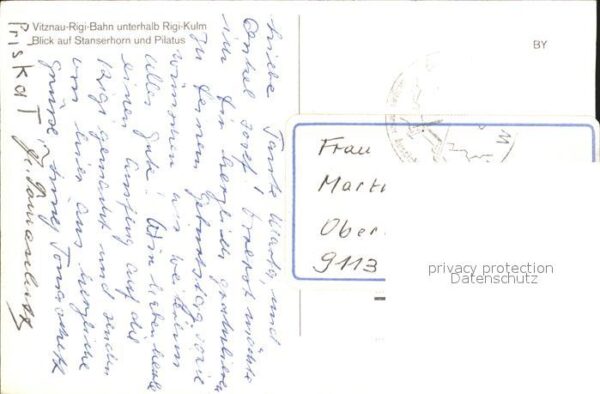 Vitznau-Rigi-Bahn unterhalb Rigi-Kulm
Blick auf Stanserhorn und Pilatus
BY
Liebe Tante Marta, und
Onkel Josef! Vorerst möchte
ich Dir herzlich gratulieren
zu Deinem Geburtstag, sowie
wünschen wir weiterhin
alles Gute! Wir haben heute
einen Ausflug auf die
Rigi gemacht und senden
von hier aus herzliche
Grüsse,
Priska T
Frau
Mart
Ober
9113
privacy protection
Datenschutz